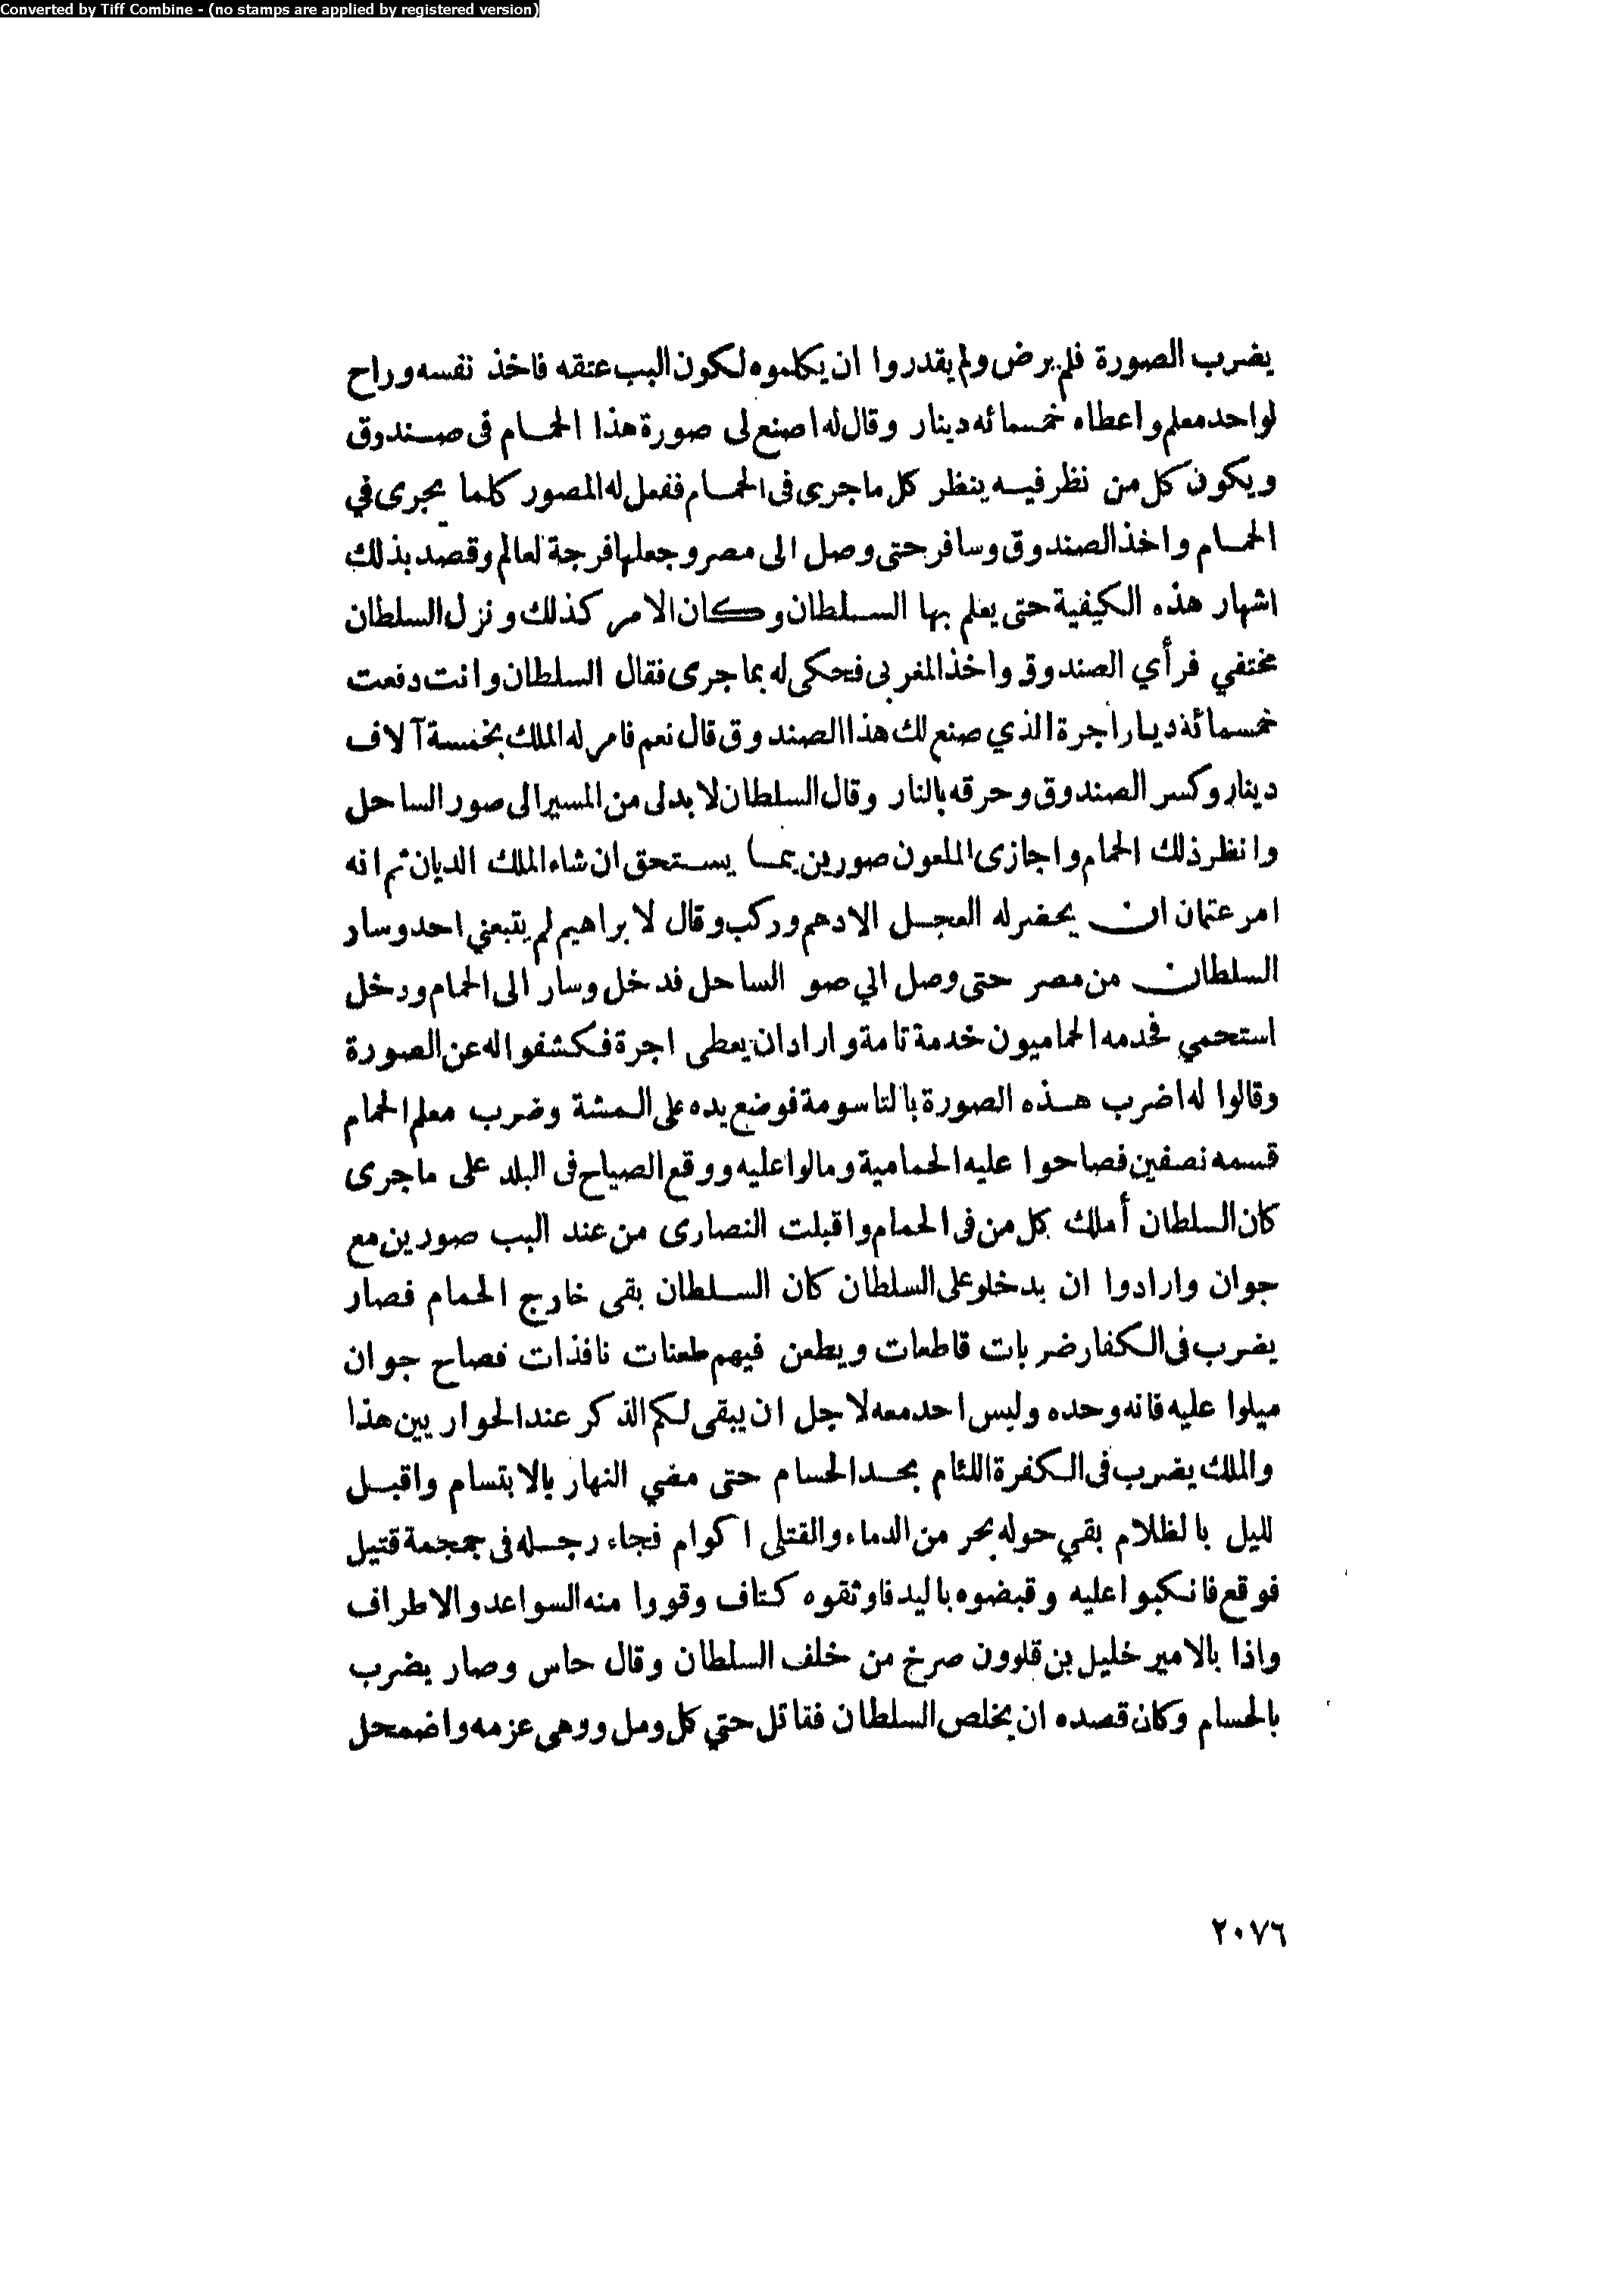 Converted by Tiff Combine - (no stamps are applied by registered version)
يضرب الصورة فلم يرض ولم يقدروا ان يكلموه لكون البب عتقه فاخذ نفسه وراح
لواحد معلم واعطاه خمسمائه دينار وقال له اصنع لى صورة هذا الحمام فى صندوق
ويكون كل من نظر فيه ينظر كل ما جرى فى الحمام ففعل له المصور كلما يجرى في
الحمام واخذ الصندوق وسافر حتى وصل الى مصر وجعلها فرجة لعالم وقصد بذلك
اشهار هذه الكيفية حتى يعلم بها السلطان وكان الامر كذلك ونزل السلطان
مختفي فرأي الصندوق واخذ المغربى فحكى له بما جرى فقال السلطان وانت دفعت
خمسمائة ديار اجرة الذي صنع لك هذا الصندوق قال نعم فامر له الملك بخمسة آلاف
دينار وكسر الصندوق وحرقه بالنار وقال السلطان لا بد لى من المسير الى صور الساحل
وانظر ذلك الحمام واجازى الملعون صورين بما يستحق ان شاء الملك الديان ثم انه
امر عتمان ان يحضر له العجل الادهم وركب وقال لابراهيم لم يتبعني احد وسار
السلطان من مصر حتى وصل الي صو الساحل فدخل وسار الى الحمام ودخل
استحمي فخدمه الحماميون خدمة تامة واراد ان يعطى اجرة فكشفوا له عن الصورة
وقالوا له اضرب هذه الصورة بالتاسومة فوضع يده على المشة وضرب معلم الحمام
قسمه نصفين فصاحوا عليه الحمامية ومالوا عليه ووقع الصياح فى البلد على ما جرى
كان السلطان أهلك كل من فى الحمام واقبلت النصارى من عند البب صورين مع
جوان وارادوا ان يدخلو على السلطان كان السلطان بقى خارج الحمام فصار
يضرب فى الكفار ضربات قاطعات ويطعن فيهم طعنات نافذات فصاح جوان
ميلوا عليه فانه وحده وليس احد معه لاجل ان يبقى لكم الذكر عند الحواريين هذا
والملك يضرب فى الكفرة اللئام بحد الحسام حتى مضي النهار بالابتسام واقبل
لليل بالظلام بقي حوله بحر من الدماء والقتلى اكوام فجاء رجله فى جمجمة قتيل
فوقع فانكبوا عليه وقبضوه باليد فاوثقوه كتاف وقووا منه السواعد والاطراف
واذا بالامير خليل بن قلوون صرخ من خلف السلطان وقال حاس وصار يضرب
بالحسام وكان قصده ان يخلص السلطان فقاتل حتي كل ومل ووهى عزمه واضمحل
٢٠٧٦